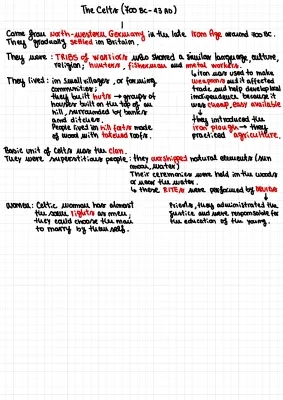 The Celts (700 BC - 43 AD)
Came from North-western Germany in the late Iron Age around 700 BC.
They gradually settled in Britain.
They were : TRIBES of WARRIORS who shared a similar language, culture,
religion; hunters, fisherman and metal workers.
↳ Iron was used to make
weapons and it affected
trade and help develop local
independence because it
was cheap, easy available
↓
they introduced the
iron plough → they
practiced agriculture.
They lived : in small villages, or farming
communities;
they built huts → groups of
houses built on the top of an
hill, surrounded by banks
and ditches.
People lived in hill forts made
of wood with roofs.
Basic unit of Celts was the clan.
They were superstitious people : they worshipped natural elements (sun
moon, water)
Their ceremonies were held in the woods
or near the water.
↳ these RITES were performed by DRUIDS
↓
Priests, they administrated the
justice and were responsible for
the education of the young.
WOMEN : Celtic woman has almost
the same rights as men;
they could choose the man
to marry by themself.